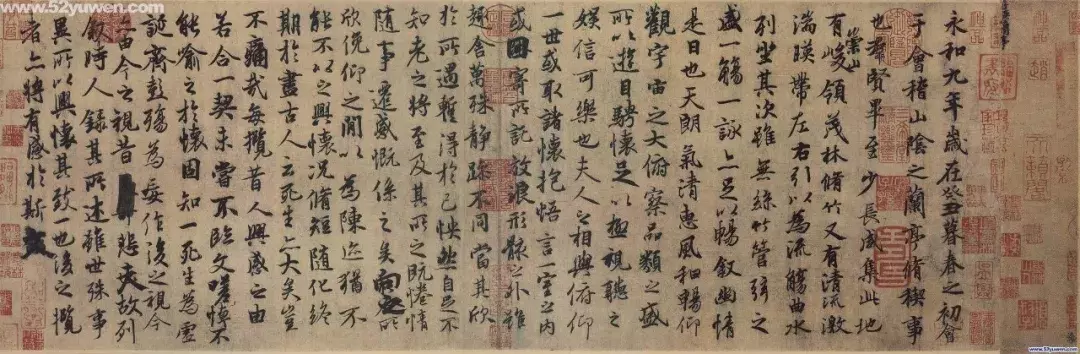 永和九年歲在癸丑暮春之初會
于會稽山陰之蘭亭脩稧事
也群賢畢至少長咸集此地
有崇山峻領茂林脩竹又有清流激
湍暎帶左右引以為流觴曲水
列坐其次雖無絲竹管弦之
盛一觴一詠亦足以暢敘幽情
是日也天朗氣清惠風和暢仰
觀宇宙之大俯察品類之盛
所以遊目騁懷足以極視聽之
娛信可樂也夫人之相與俯仰
一世或取諸懷抱悟言一室之內
或因寄所託放浪形骸之外雖
趣舍萬殊靜躁不同當其欣
於所遇蹔得於己怏然自足不
知老之將至及其所之既惓情
隨事遷感慨係之矣向之所
欣俛仰之閒以為陳迹猶不
能不以之興懷況脩短隨化終
期於盡古人云死生亦大矣豈
不痛哉每攬昔人興感之由
若合一契未嘗不臨文嗟悼不
能喻之於懷固知一死生為虛
誕齊彭殤為妄作後之視今
亦由今之視昔悲夫故列
敘時人錄其所述雖世殊事
異所以興懷其致一也後之攬
者亦將有感於斯文
www.52yuwen.com
www.52yuwen.com